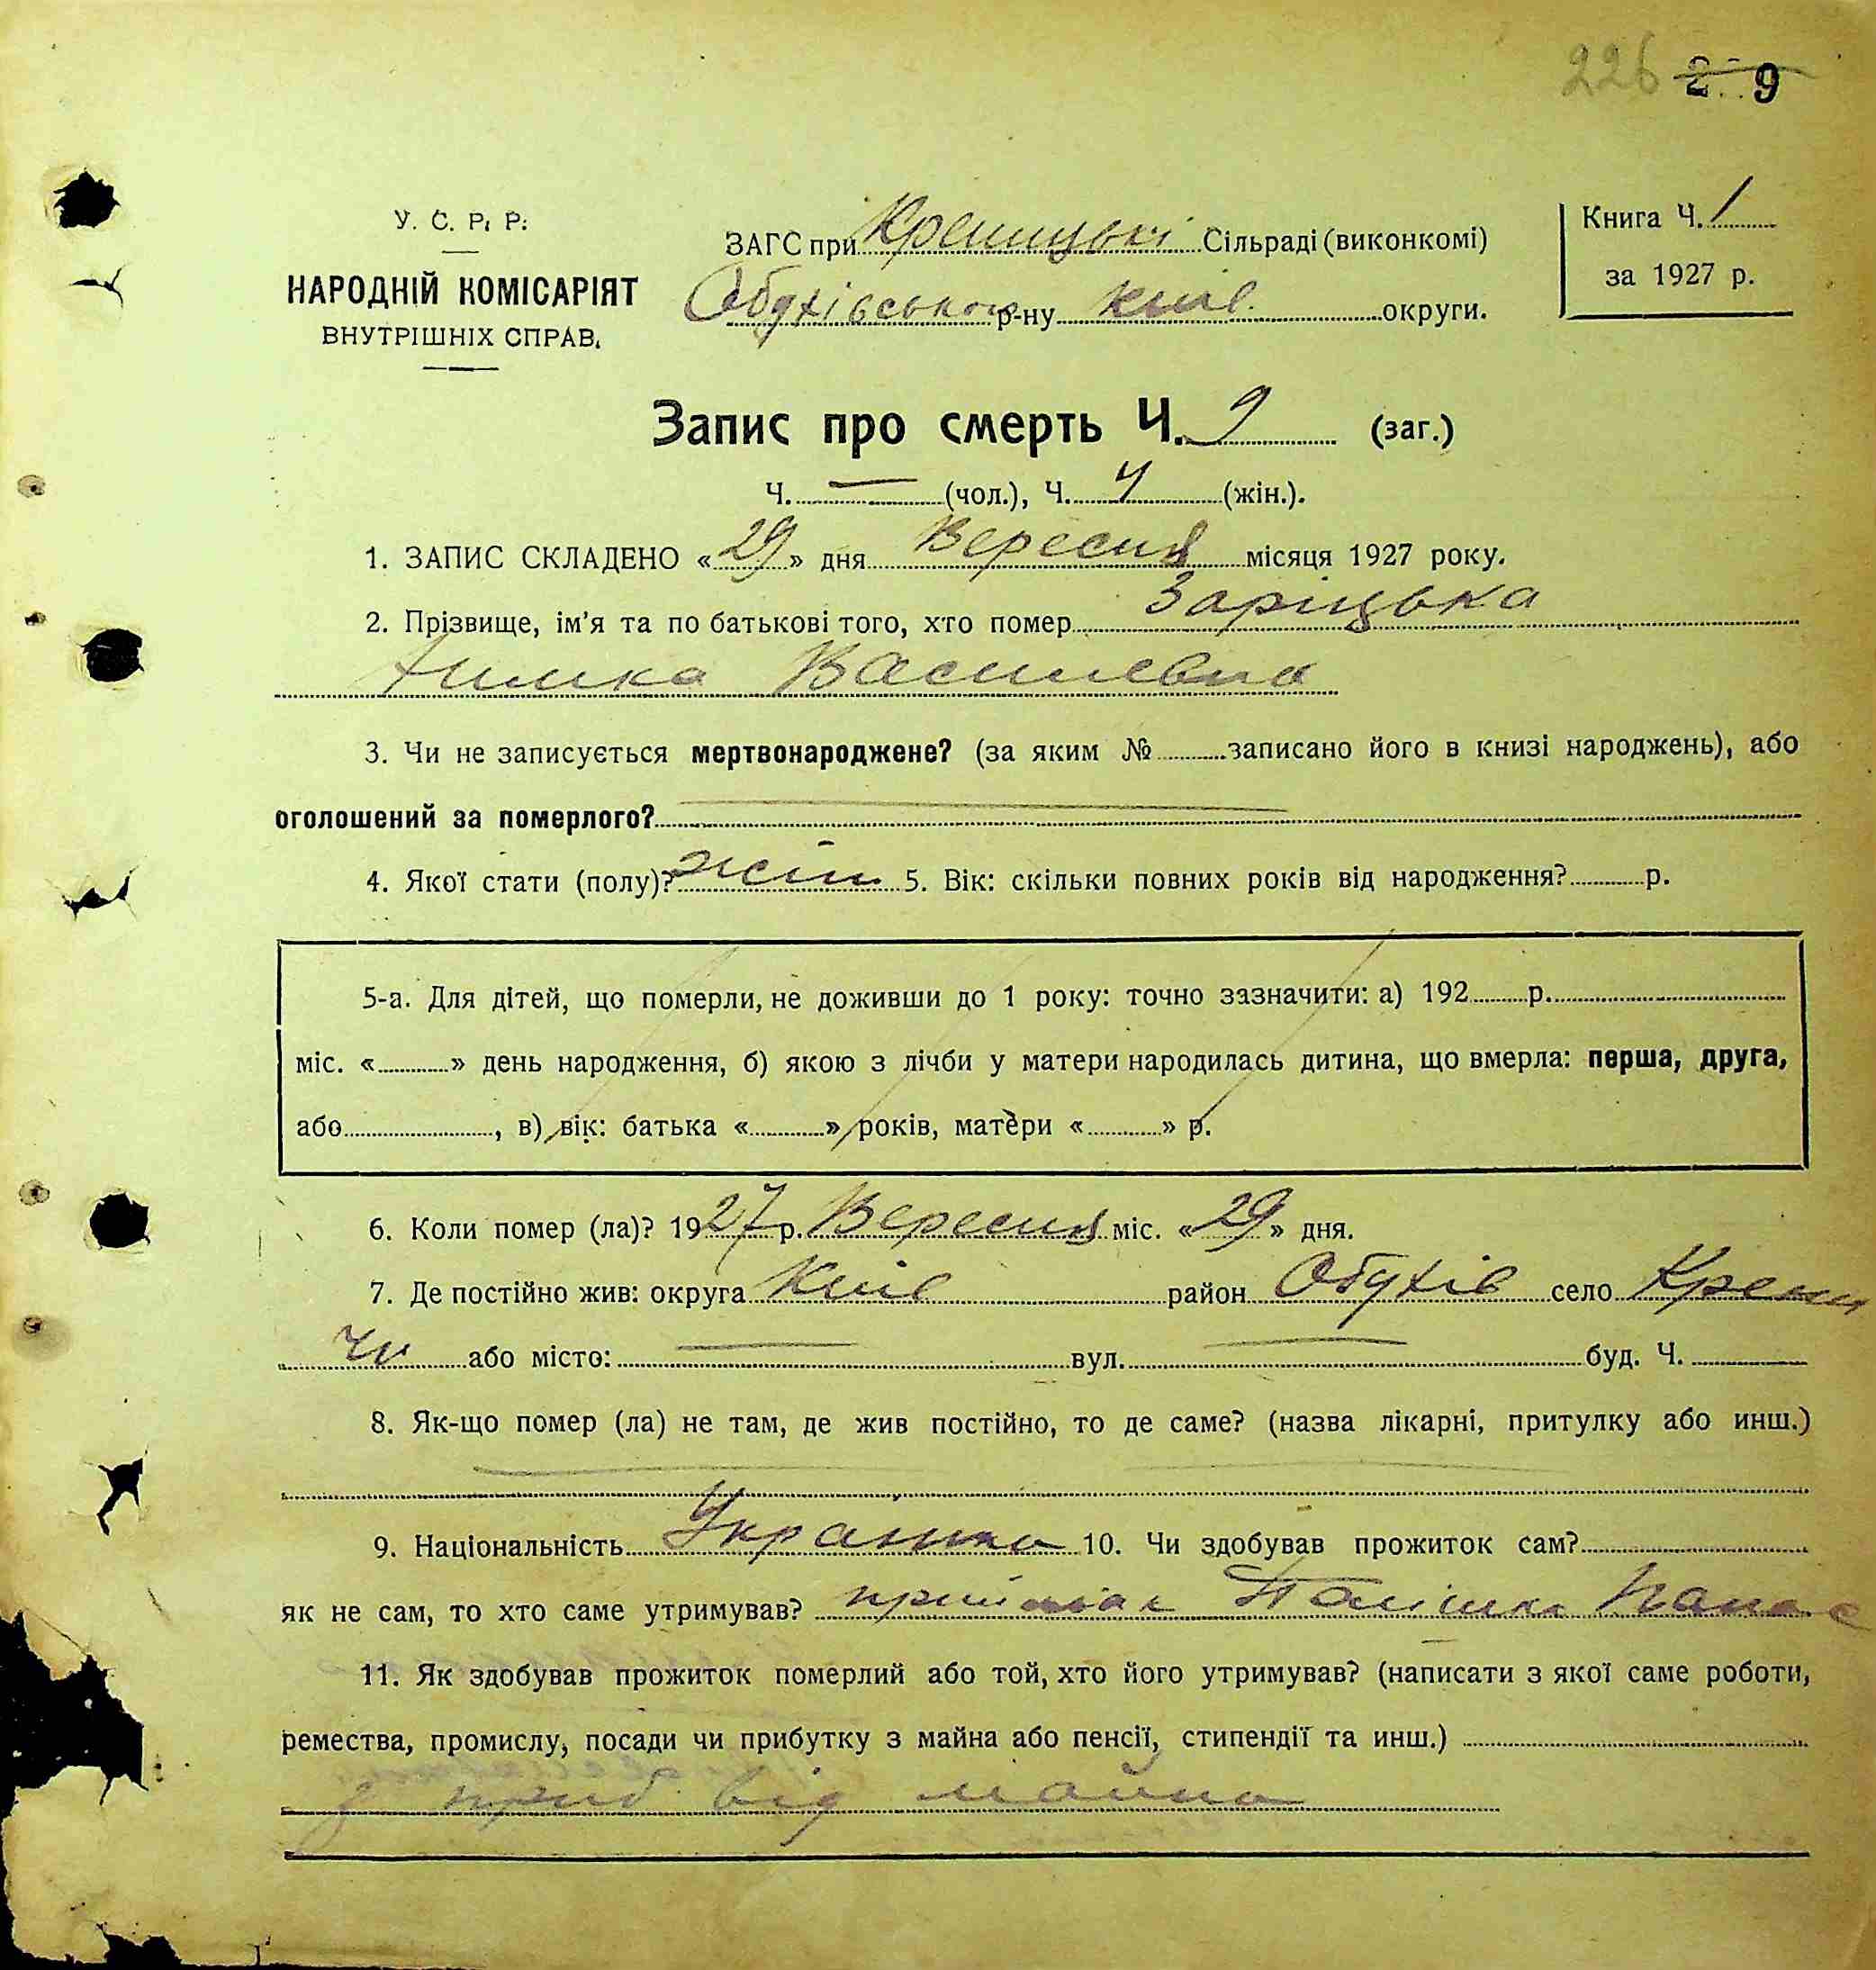 226 2 9
У. С. Р. Р.
НАРОДНІЙ КОМІСАРІЯТ
ВНУТРІШНІХ СПРАВ.
ЗАГС при Креницькі Сільраді (виконкомі)
Обухівського р-ну Київ. округи.
Книга Ч. 1
за 1927 р.
Запис про смерть Ч. 9 (заг.)
Ч. — (чол.), Ч. 4 (жін.).
1. ЗАПИС СКЛАДЕНО «29» дня Вересня місяця 1927 року.
2. Прізвище, ім'я та по батькові того, хто помер Заріцька
Химка Василевна
3. Чи не записується мертвонароджене? (за яким № записано його в книзі народжень), або
оголошений за померлого?
4. Якої стати (полу)? жін 5. Вік: скільки повних років від народження? р.
5-а. Для дітей, що померли, не доживши до 1 року: точно зазначити: а) 192 р.
міс. « » день народження, б) якою з лічби у матери народилась дитина, що вмерла: перша, друга,
або , в) вік: батька « » років, матери « » р.
6. Коли помер (ла)? 1927 р. Вересня міс. «29» дня.
7. Де постійно жив: округа Київ район Обухів село Крени
чи або місто: — вул. — буд. Ч.
8. Як-що помер (ла) не там, де жив постійно, то де саме? (назва лікарні, притулку або инш.)
9. Національність Українка 10. Чи здобував прожиток сам?
як не сам, то хто саме утримував? Панас
11. Як здобував прожиток померлий або той, хто його утримував? (написати з якої саме роботи,
ремества, промислу, посади чи прибутку з майна або пенсії, стипендії та инш.)
з приб від майна